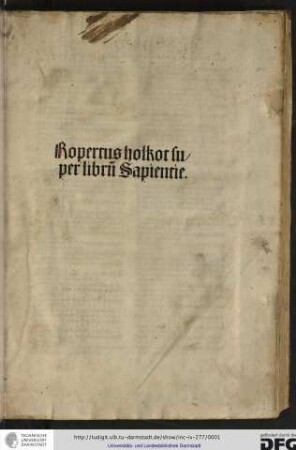 Ropertus holkot su/
per librū Sapientie.
TECHNISCHE
UNIVERSITÄT
DARMSTADT
http://tudigit.ulb.tu-darmstadt.de/show/inc-iv-277/0001
Universitäts- und Landesbibliothek Darmstadt
gefördert durch die
DFG